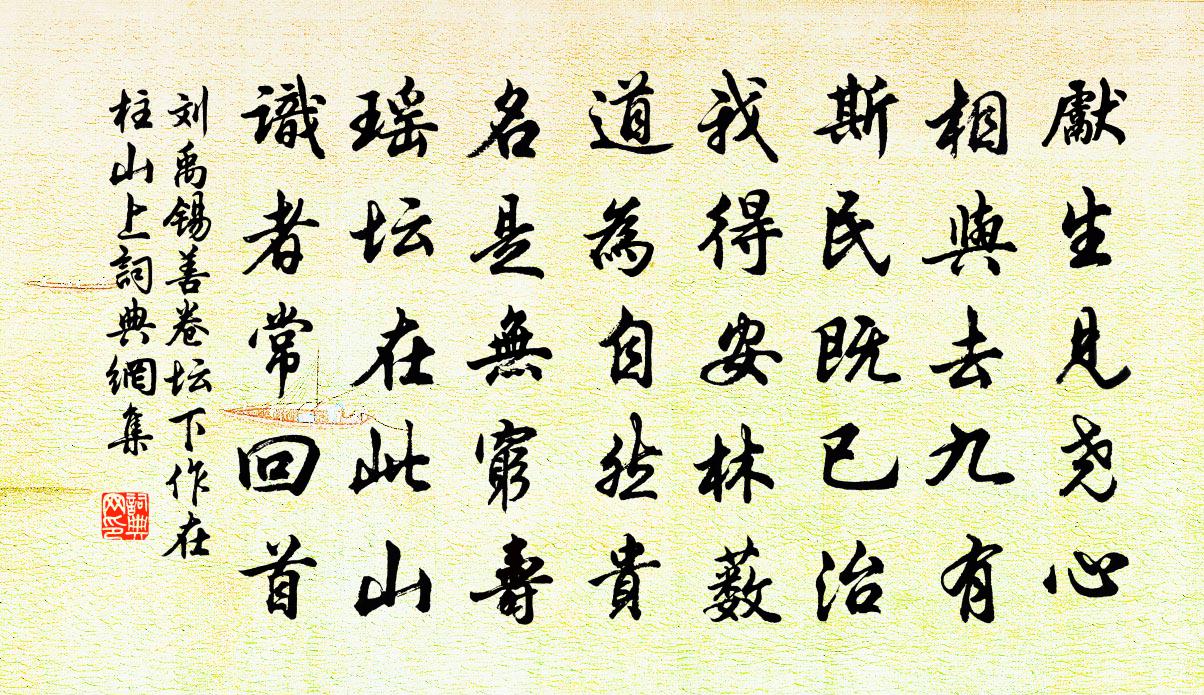 獻生見尧心
相與去九有
斯民既已治
我得安林薮
道為自然貴
名是無窮壽
瑶坛在此山
識者常回首
刘禹锡善卷坛下作在
柱山上詞典網集
詞典网印